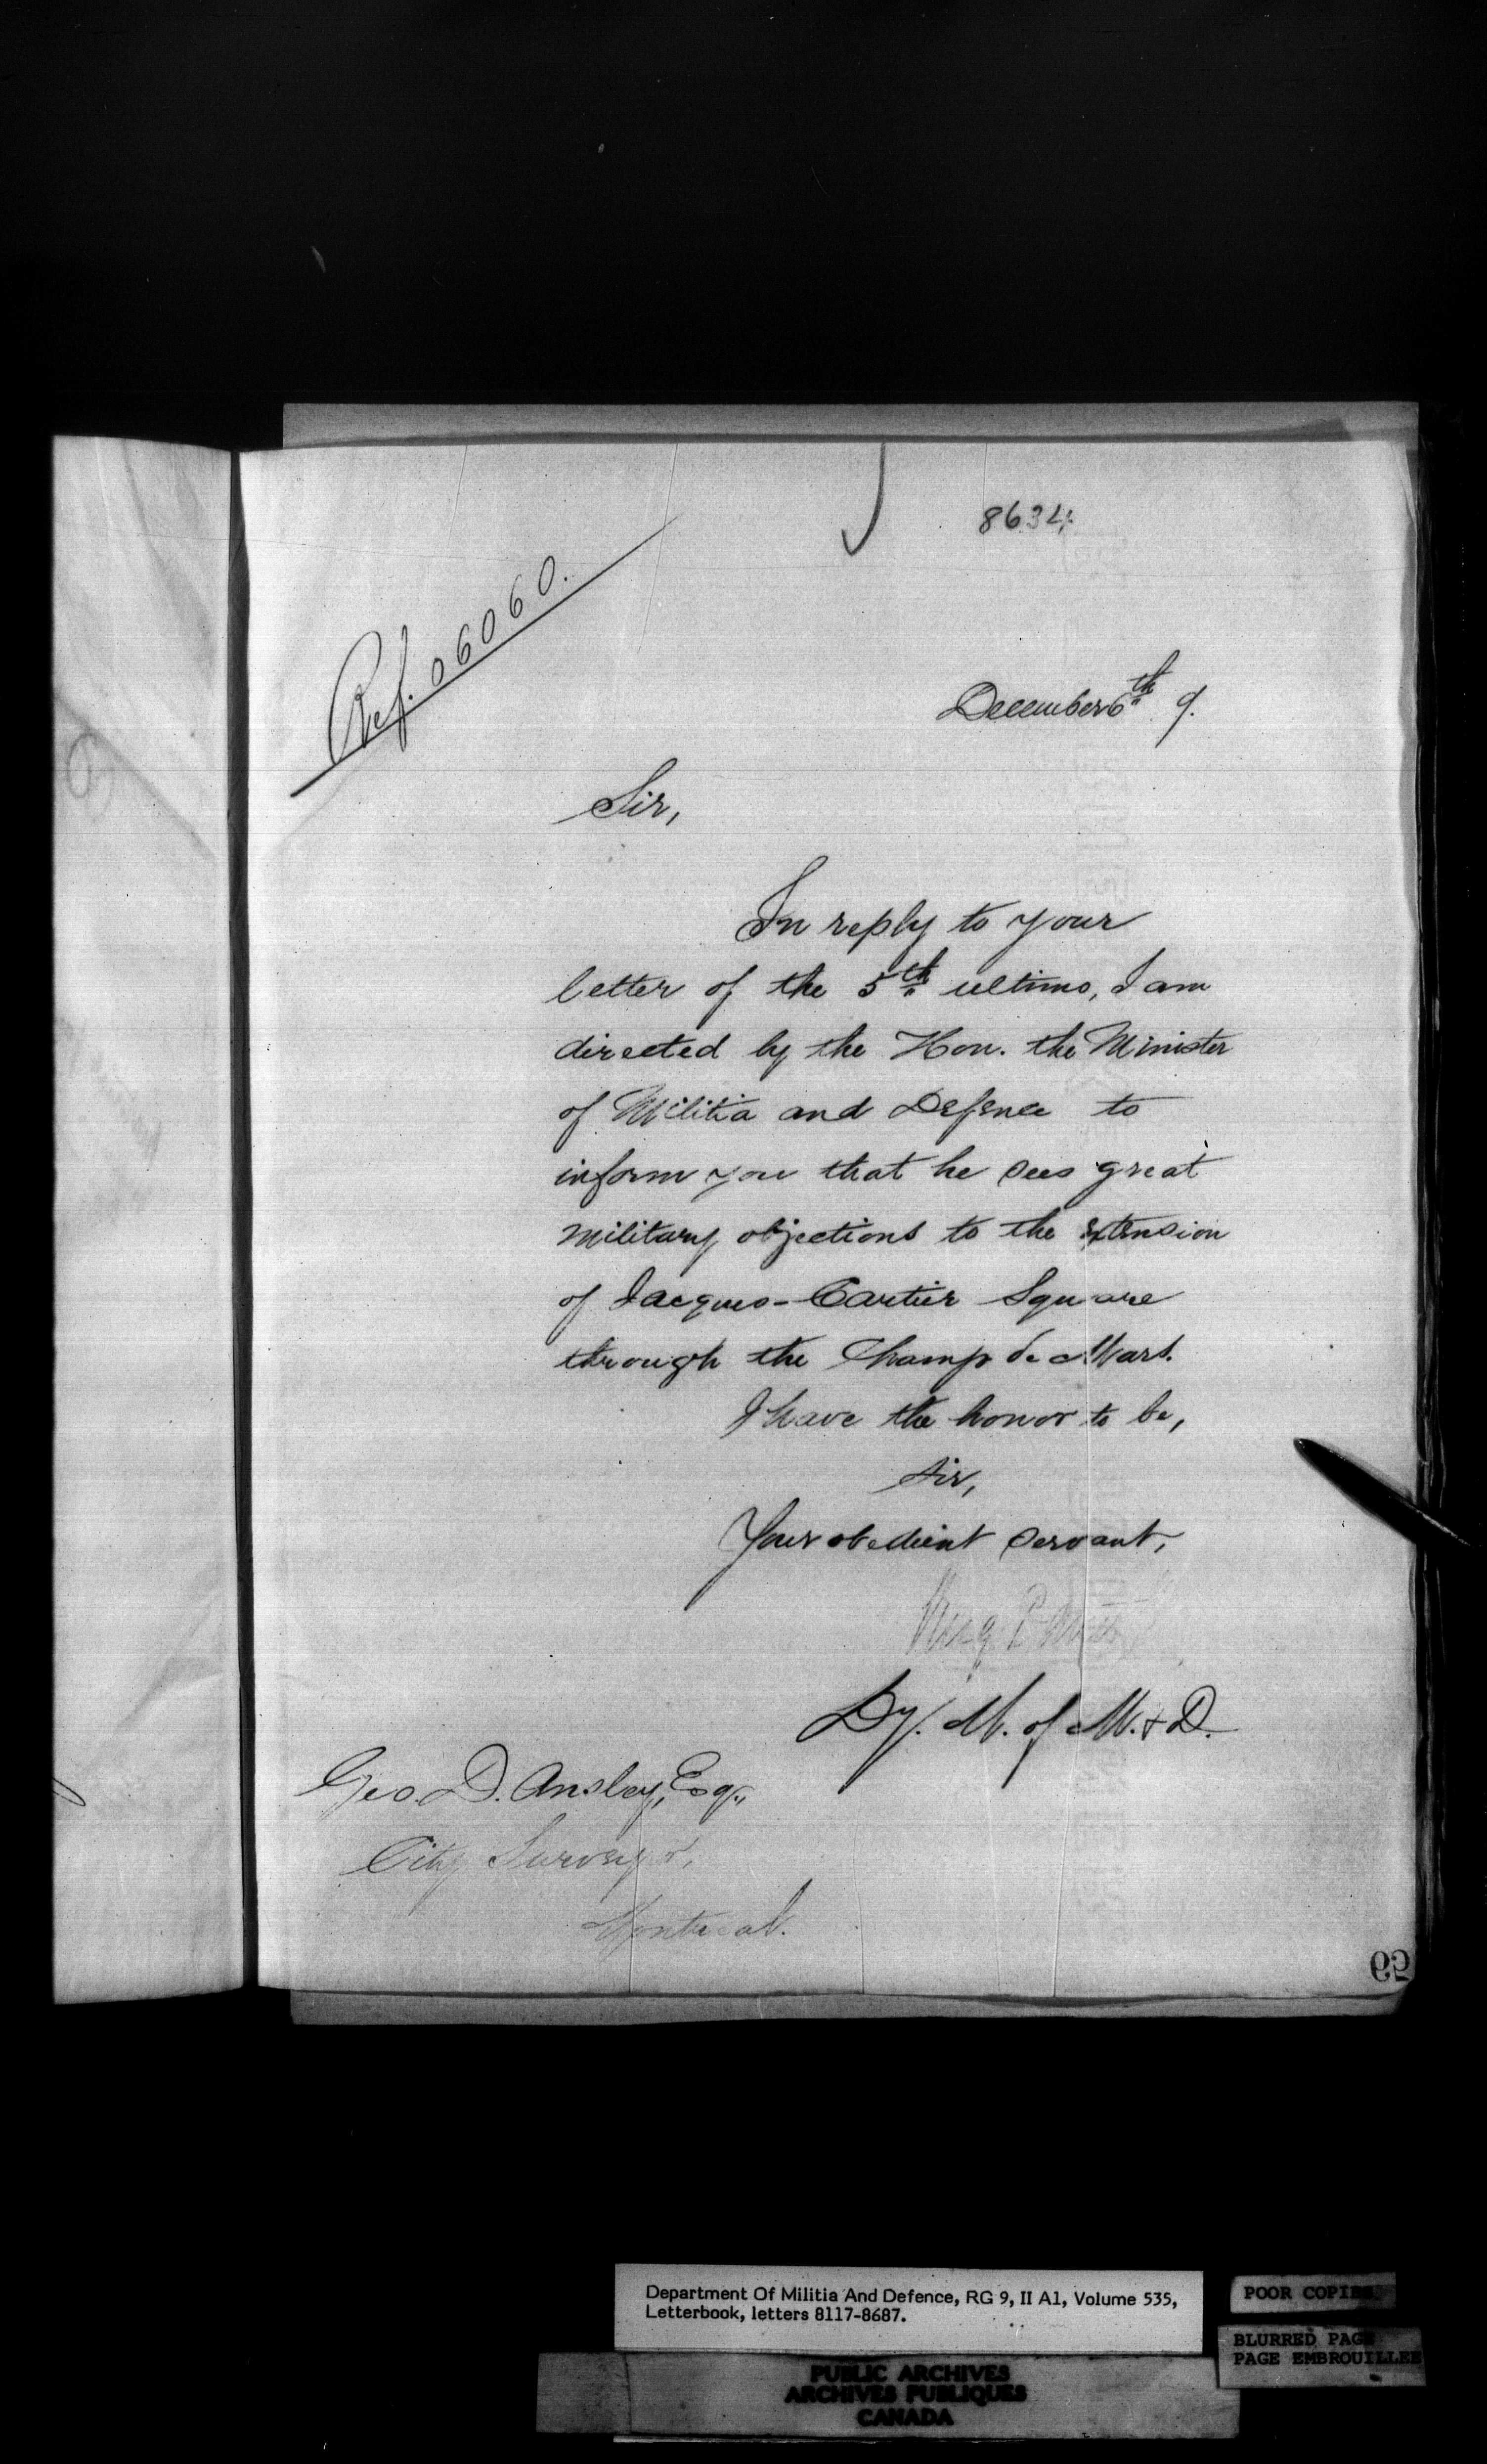 8634
Ref. 06060.
December 6th 9.
Sir,
In reply to your
letter of the 5th ultimo, I am
directed by the Hon. the Minister
of Militia and Defence to
inform you that he sees great
military objections to the extension
of Jacques-Cartier Square
through the Champ de Mars.
I have the honor to be,
Sir,
Your obedient servant,
Dy. M. of M. & D.
Geo. D. Ansley, Esq.,
City Surveyor,
Montreal.
59
Department Of Militia And Defence, RG 9, II A1, Volume 535,
Letterbook, letters 8117-8687.
POOR COPIES
BLURRED PAGE
PAGE EMBROUILLEE
PUBLIC ARCHIVES
ARCHIVES PUBLIQUES
CANADA